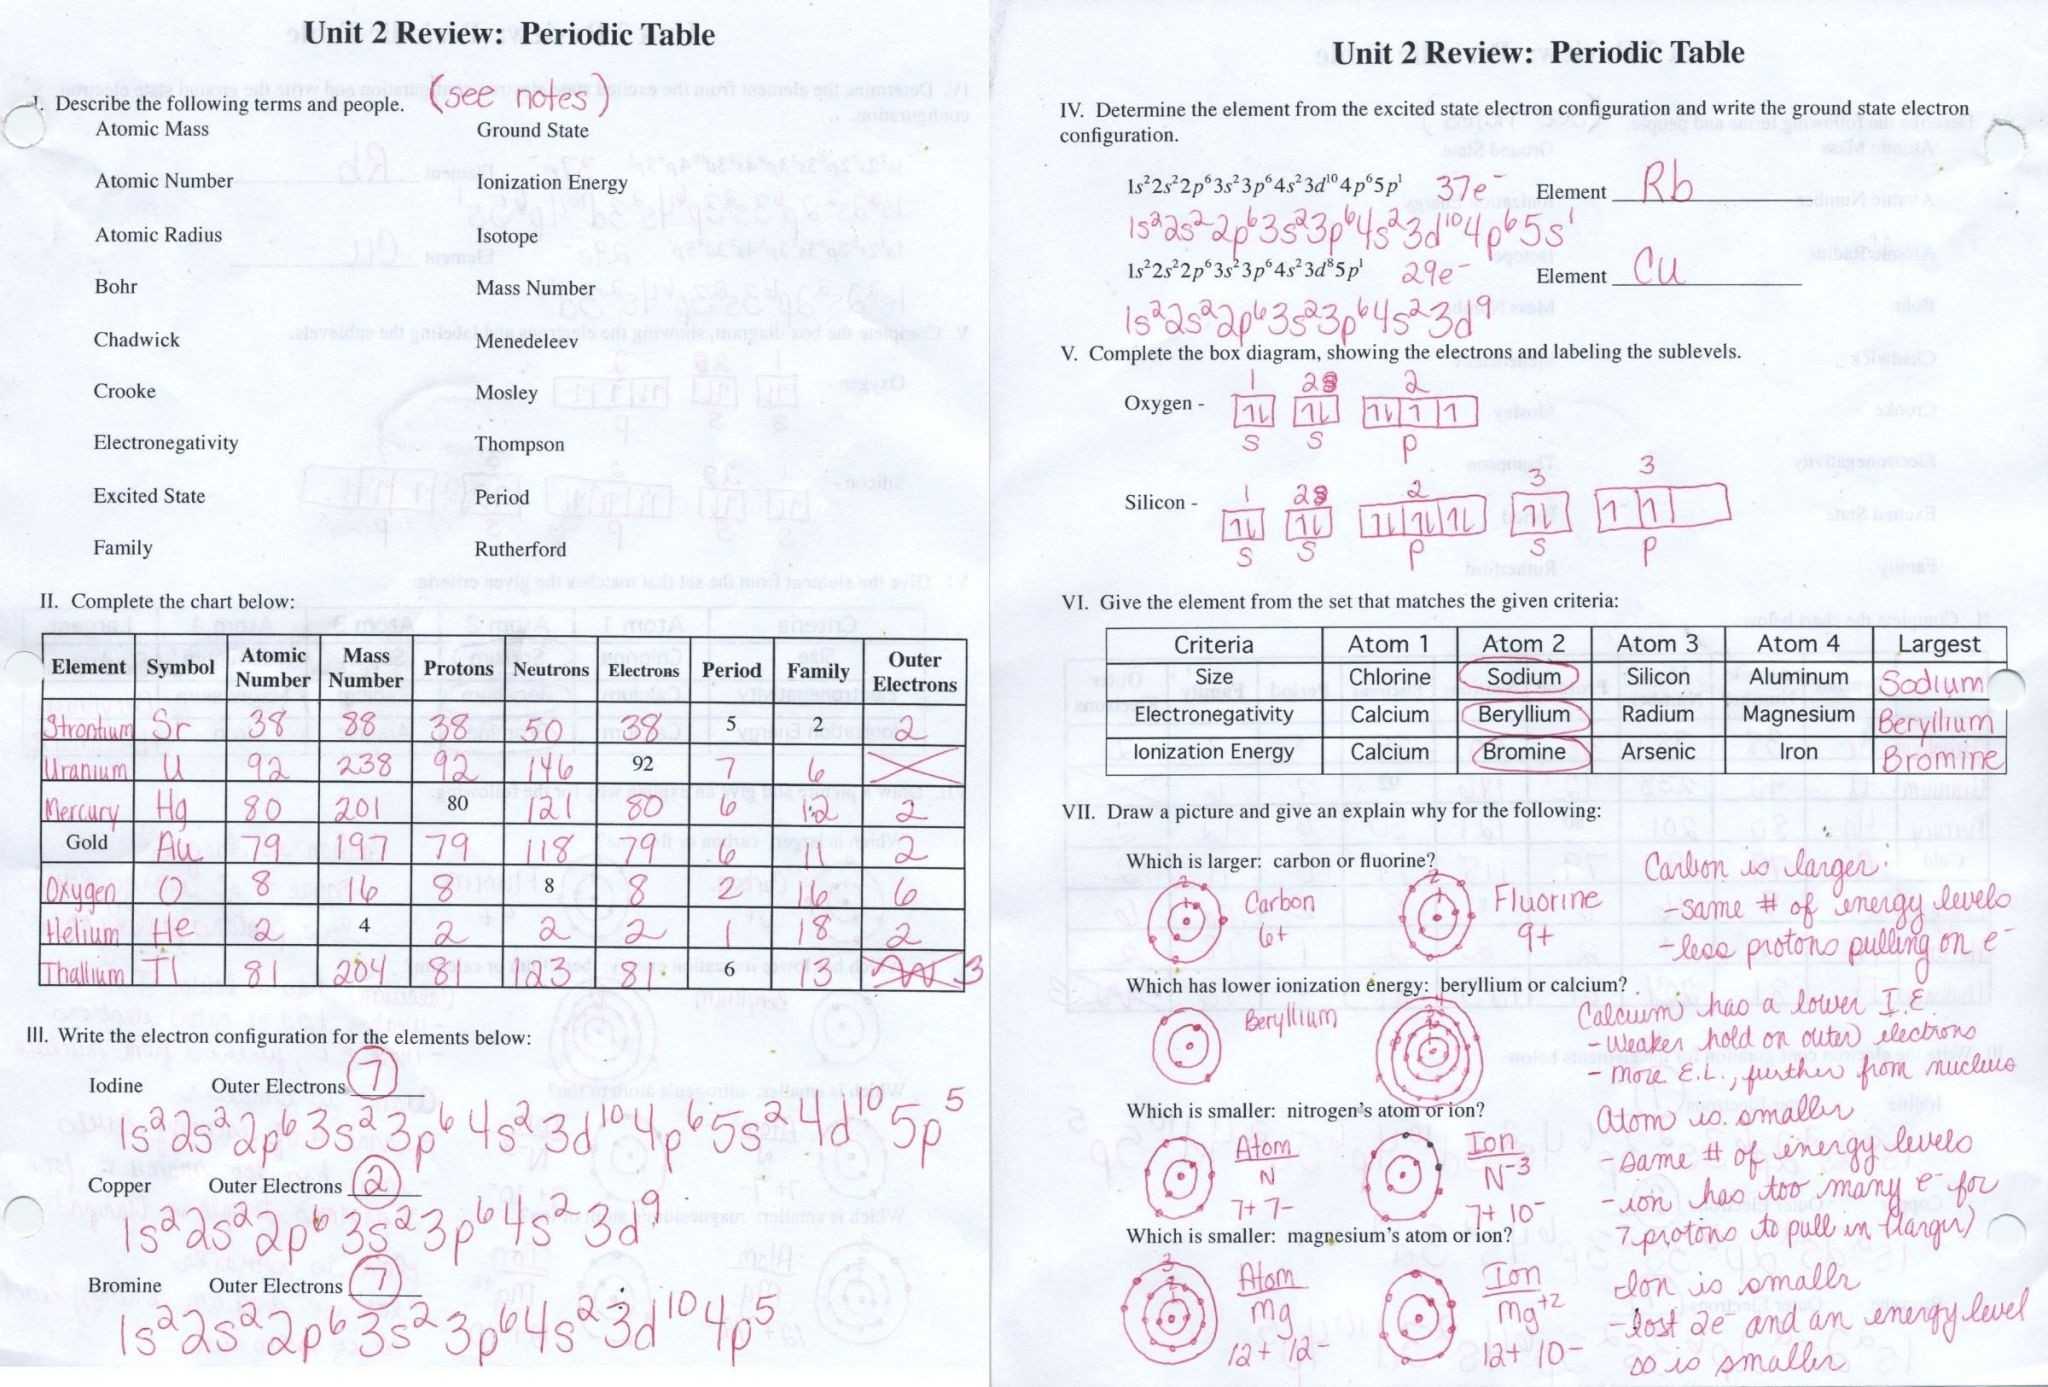 Unit 2 Review: Periodic Table
I. Describe the following terms and people. (see notes)
Atomic Mass Ground State
Atomic Number Ionization Energy
Atomic Radius Isotope
Bohr Mass Number
Chadwick Menedeleev
Crooke Mosley
Electronegativity Thompson
Excited State Period
Family Rutherford
II. Complete the chart below:
Element Symbol Atomic Number Mass Number Protons Neutrons Electrons Period Family Outer Electrons
Strontium Sr 38 88 38 50 38 5 2 2
Uranium U 92 238 92 146 92 7 6
Mercury Hg 80 201 80 121 80 6 12 2
Gold Au 79 197 79 118 79 6 11 2
Oxygen O 8 16 8 8 8 2 16 6
Helium He 2 4 2 2 2 1 18 2
Thallium Tl 81 204 81 123 81 6 13 3
III. Write the electron configuration for the elements below:
Iodine Outer Electrons 7
1s²2s²2p⁶3s²3p⁶4s²3d¹⁰4p⁶5s²4d¹⁰5p⁵
Copper Outer Electrons 2
1s²2s²2p⁶3s²3p⁶4s²3d⁹
Bromine Outer Electrons 7
1s²2s²2p⁶3s²3p⁶4s²3d¹⁰4p⁵
Unit 2 Review: Periodic Table
IV. Determine the element from the excited state electron configuration and write the ground state electron
configuration.
1s²2s²2p⁶3s²3p⁶4s²3d¹⁰4p⁶5p¹ 37e⁻ Element Rb
1s²2s²2p⁶3s²3p⁶4s²3d¹⁰4p⁶5s¹
1s²2s²2p⁶3s²3p⁶4s²3d⁸5p¹ 29e⁻ Element Cu
1s²2s²2p⁶3s²3p⁶4s²3d⁹
V. Complete the box diagram, showing the electrons and labeling the sublevels.
1 2 2
Oxygen - 1L 1L 1L 1 1
s s p
1 2 2 3 3
Silicon - 1L 1L 1L 1L 1L 1L 1 1
s s p s p
VI. Give the element from the set that matches the given criteria:
Criteria Atom 1 Atom 2 Atom 3 Atom 4 Largest
Size Chlorine Sodium Silicon Aluminum Sodium
Electronegativity Calcium Beryllium Radium Magnesium Beryllium
Ionization Energy Calcium Bromine Arsenic Iron Bromine
VII. Draw a picture and give an explain why for the following:
Which is larger: carbon or fluorine?
Carbon
6+
Fluorine
9+
Carbon is larger:
- same # of energy levels
- less protons pulling on e⁻
Which has lower ionization energy: beryllium or calcium?
Beryllium
Calcium has a lower I.E.
- weaker hold on outer electrons
- more E.L., further from nucleus
Which is smaller: nitrogen's atom or ion?
Atom
N
7+ 7-
Ion
N⁻³
7+ 10-
Atom is smaller
same # of energy levels
- ion has too many e⁻ for
7 protons to pull in (larger)
Which is smaller: magnesium's atom or ion?
Atom
Mg
12+ 12-
Ion
Mg⁺²
12+ 10-
- Ion is smaller
- lost 2e⁻ and an energy level
so is smaller